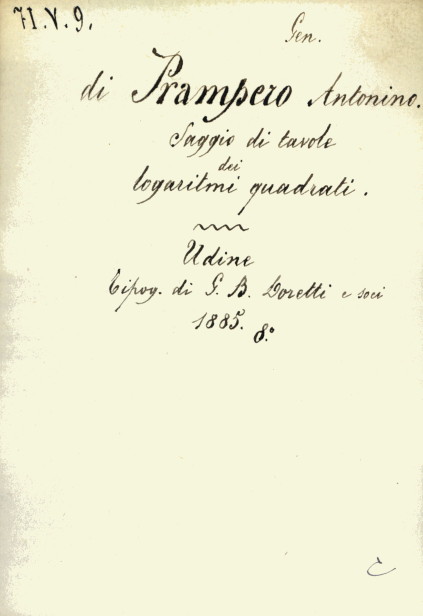 71.V.9.
Gen.
di Prampero Antonino.
Saggio di tavole
dei
logaritmi quadrati.
Udine
Tipog. di G. B. Doretti e soci
1885. 8.º
c